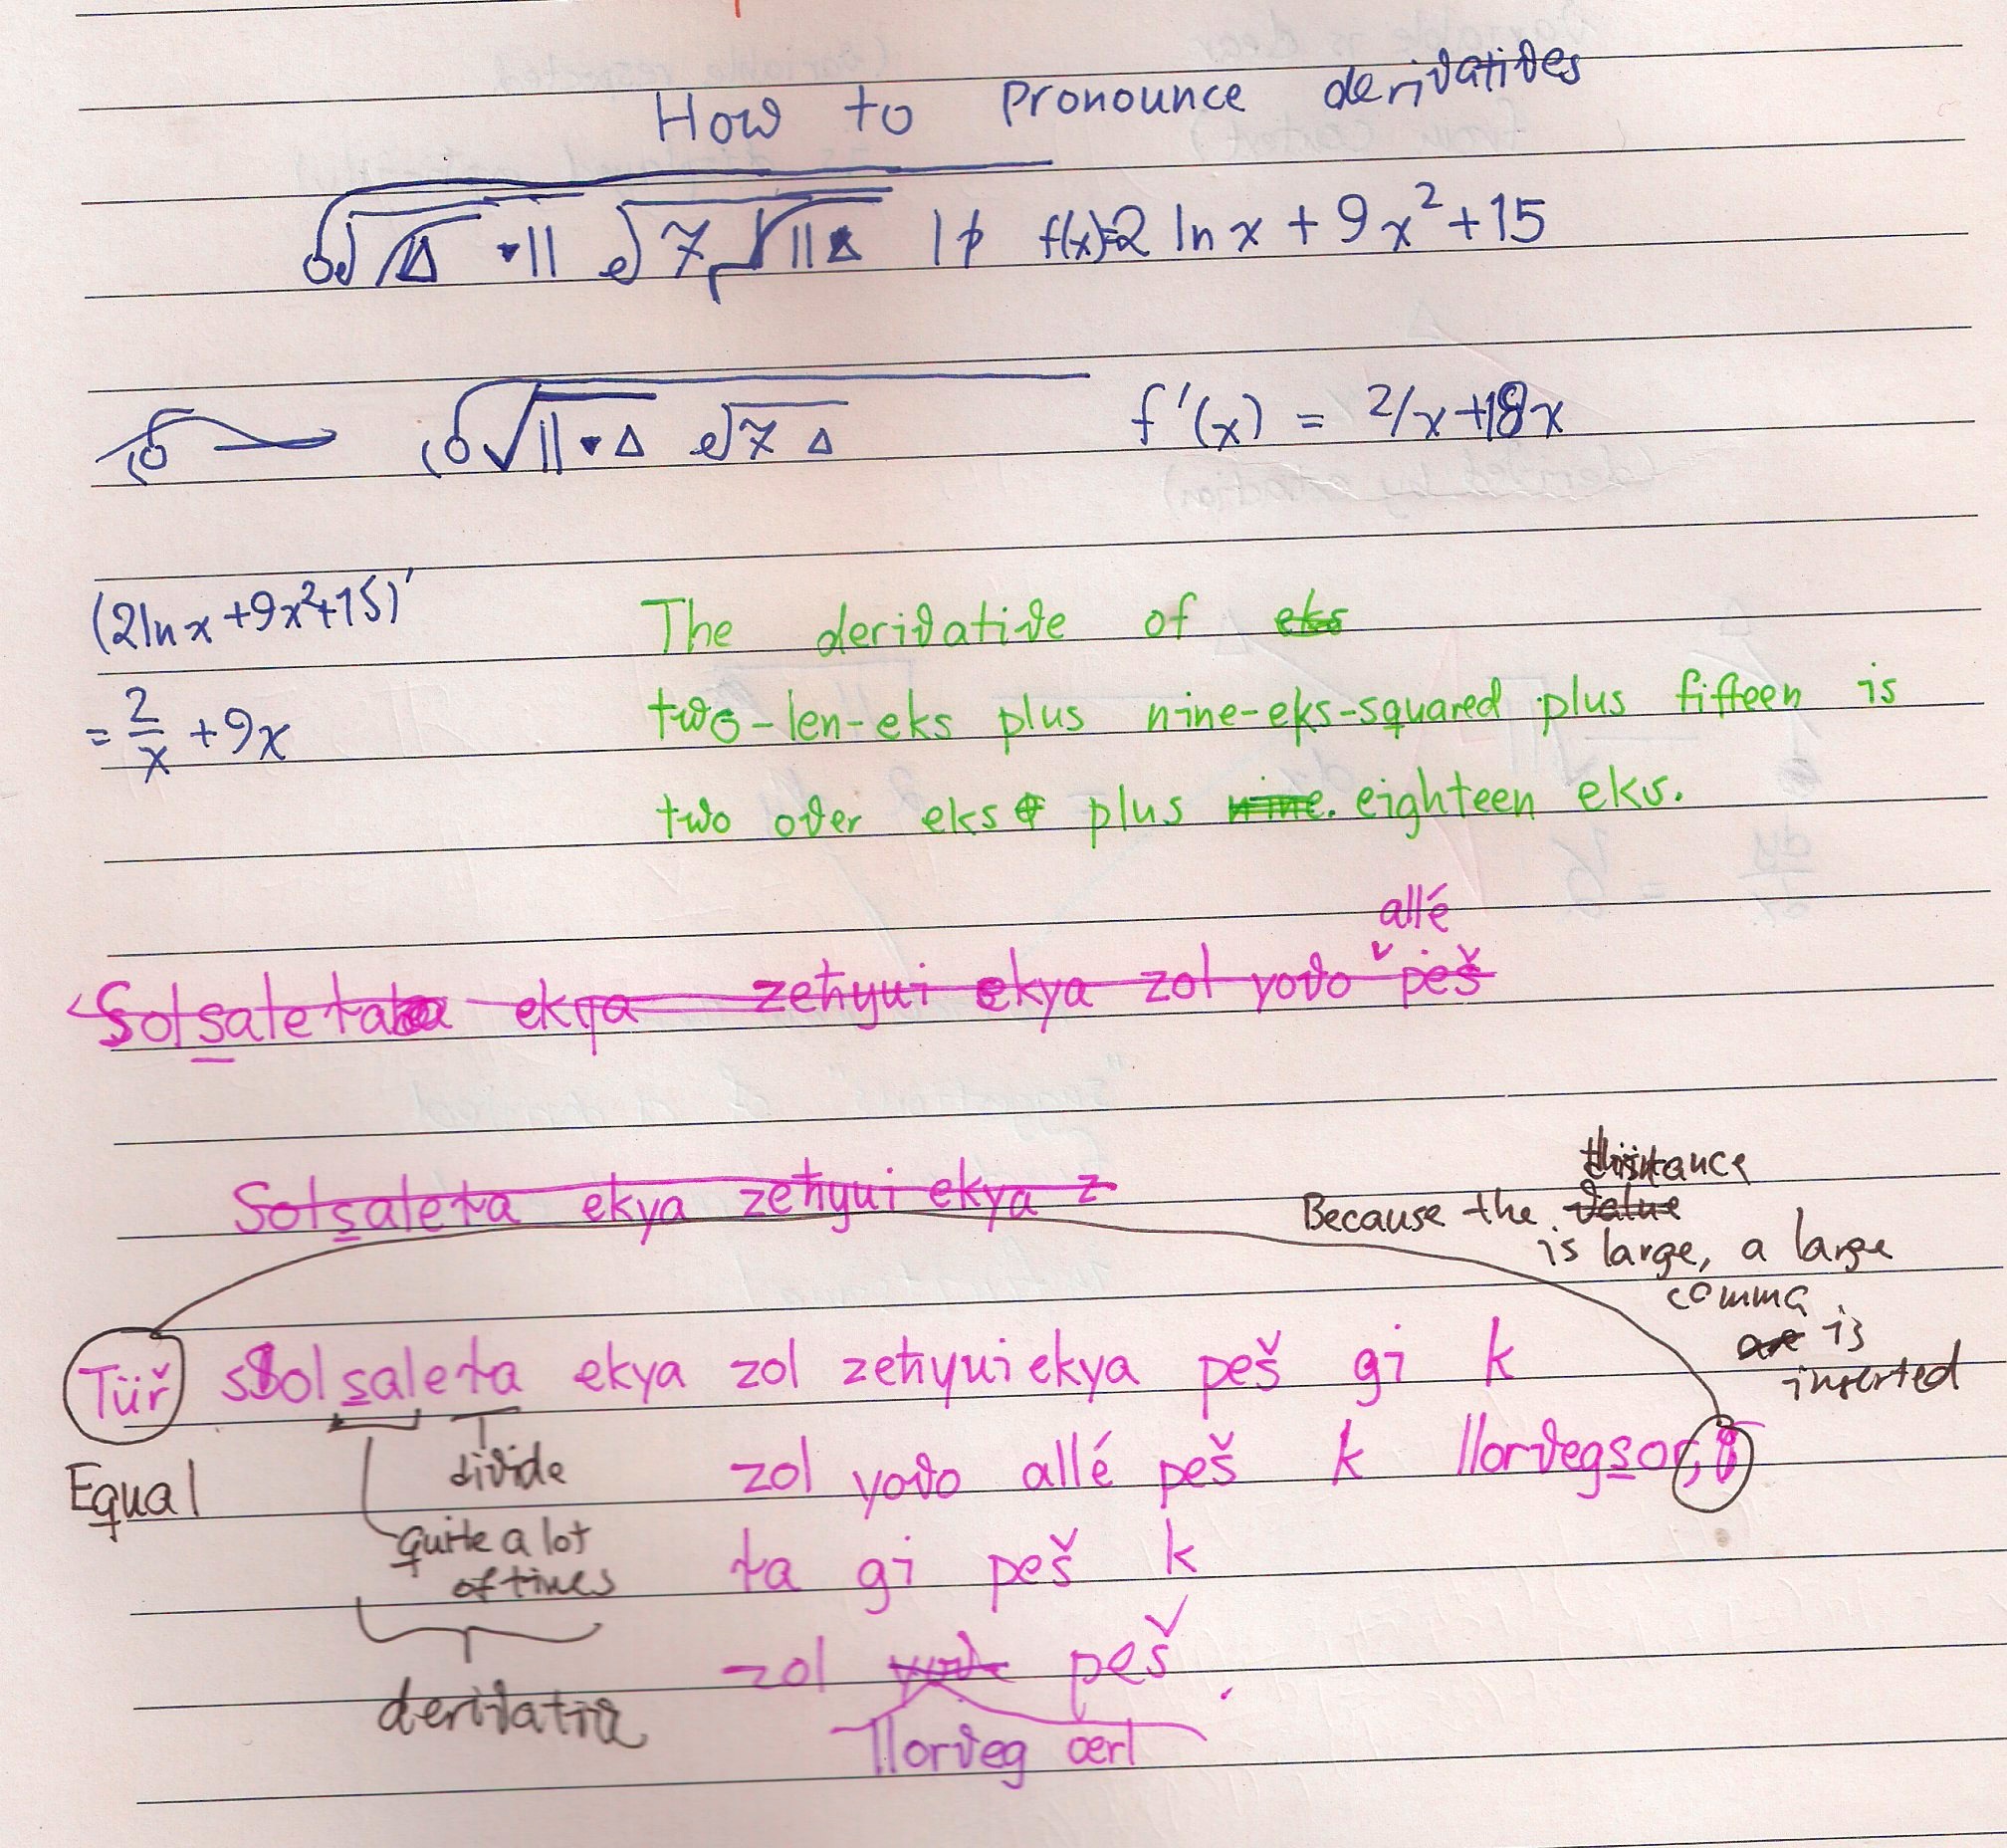 How to Pronounce derivatives
f(x)=2 ln x + 9x² + 15
f'(x) = 2/x + 18x
(2ln x + 9x² + 15)'
= 2/x + 9x
The derivative of eks
two-len-eks plus nine-eks-squared plus fifteen is
two over eks plus nine. eighteen eks.
allé
Solsaleta ekya zeħyui ekya zol yovo peš
Solsaleta ekya zeħyui ekya z
Because the value
is large, a large
comma
are is
inserted
Tüř solsaleta ekya zol zeħyui ekya peš gi k
Equal
divide
quite a lot
of times
derivative
zol yovo allé peš k llorvegsor,
ta gi peš k
zol peš.
llorveg œrl